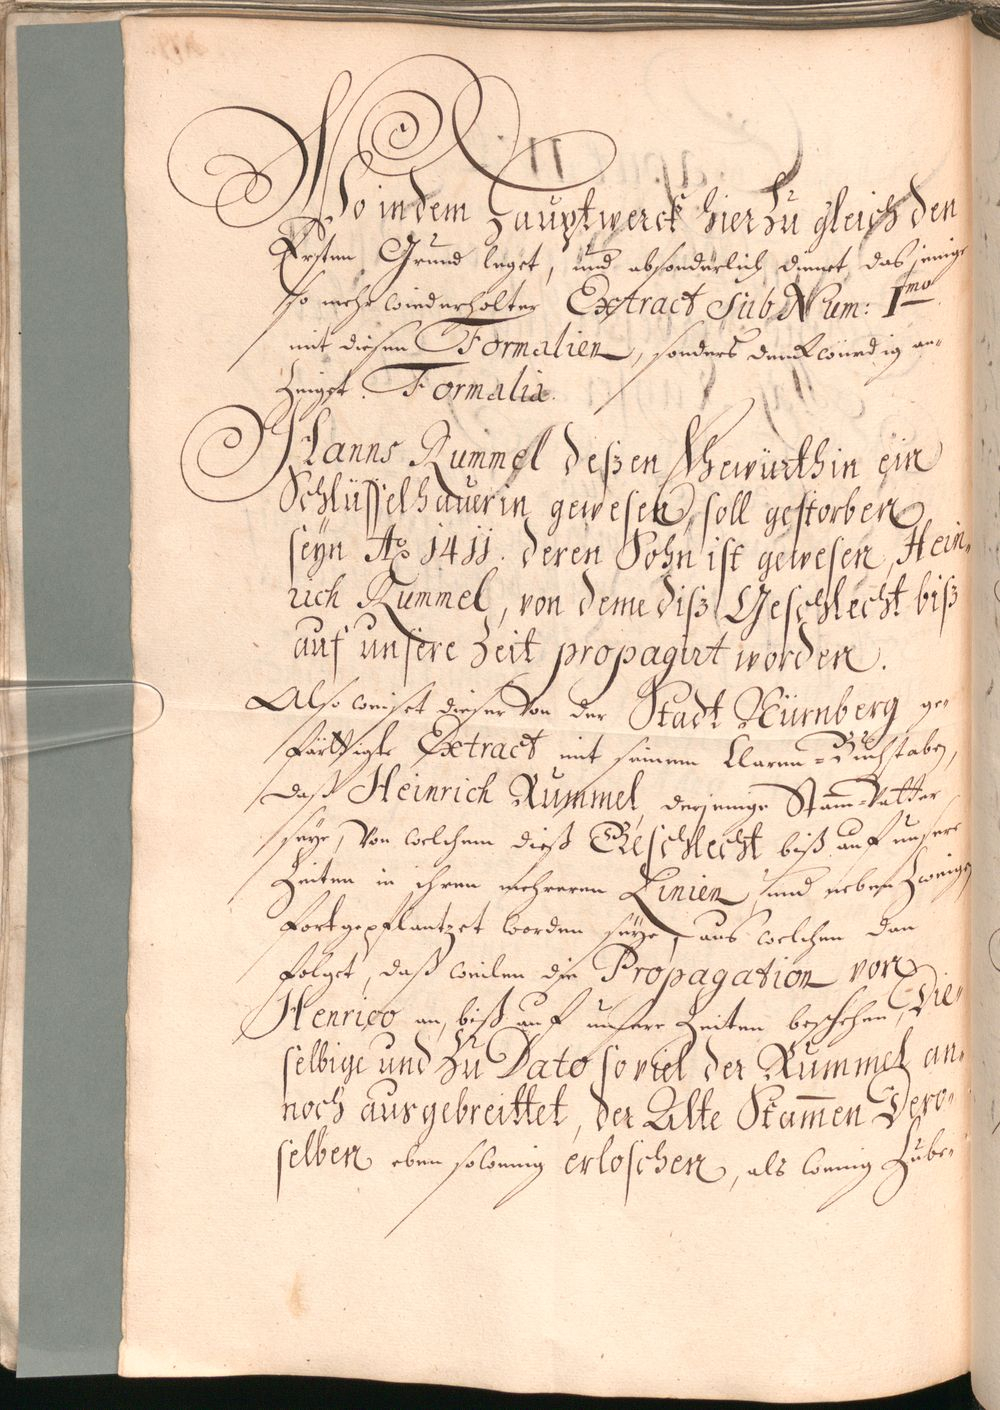 So in dem Hauptwerck hierzu gleich den
Ersten Grund leget, und absonderlich dienet das jenige
so mehr wiederholter Extract sub Num: I<sup>mo</sup>.
mit diesen Formalien, sonders denckwürdig an-
zeiget. Formalia.
Hanns Rummel deßen Ehewürthin ein
Schlüsselhauerin gewesen, soll gestorben
seyn Aō 1411. deren Sohn ist gewesen, Hein-
rich Rummel, von deme diß Geschlecht biß
auf unsere Zeit propagirt worden.
Also weiset dieser von der Stadt Nürnberg ge-
färttigte Extract mit seinem klaren-Buchstaben,
daß Heinrich Rummel, derjenige Stam̄-Vatter
seye, von welchem dieß Geschlecht biß auf unsere
Zeiten in ihren mehreren Linien, und neben Zweigen
fortgepflantzet worden seye, aus welchen dan
folget, daß weilen die Propagation von
Henrico an, biß auf unsere Zeiten beschehen, Die-
selbige und zu Dato so viel der Rummel an-
noch ausgebreittet, der Alte Stam̄en Dero-
selben eben so wenig erloschen, als wenig Zube-